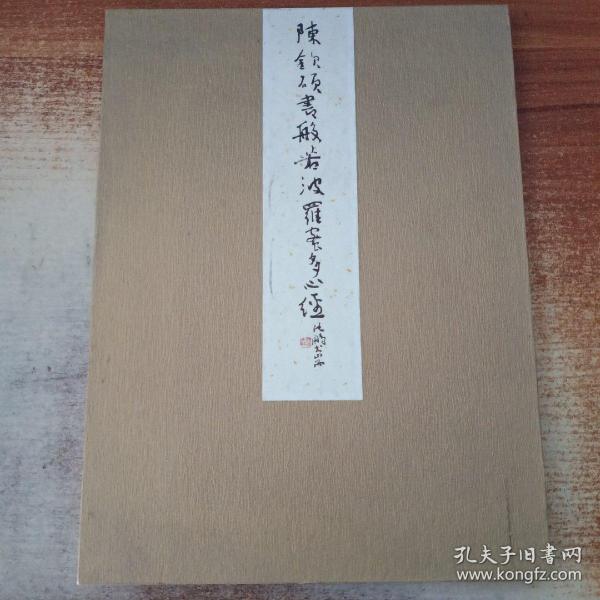 陳欽碩書般若波羅蜜多心經
沈鵬
孔夫子旧書网
www.kongfz.com